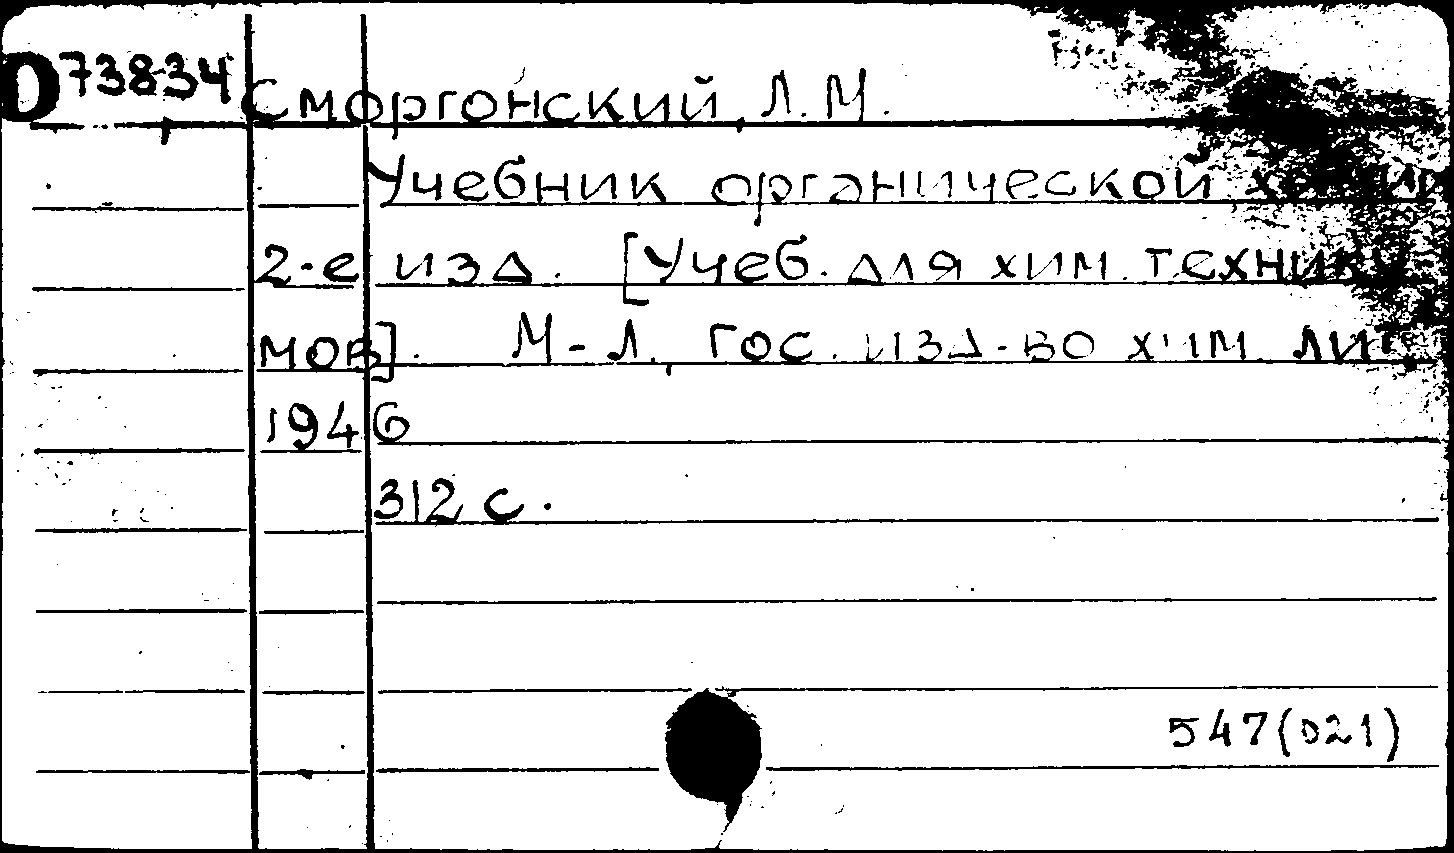 D73834 Сморгонский, Л. М.
Учебник органической химии
2-е изд. [Учеб. для хим. технику
мов]. М-Л., Гос. изд-во хим. лит.,
1946
312 с.
547(021)